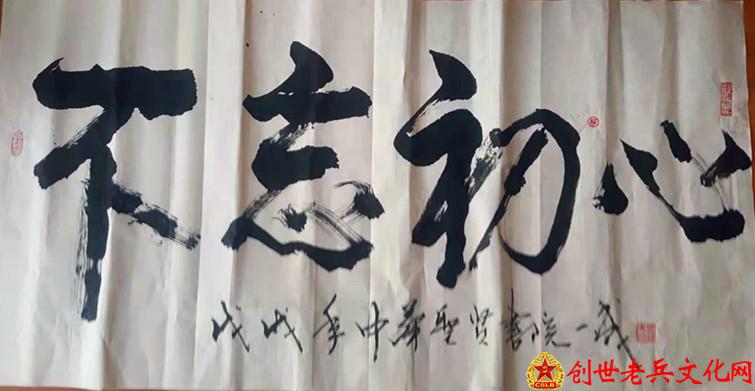 不忘初心
戊戌年中華聖贤書院一
创世老兵文化网
CSLB